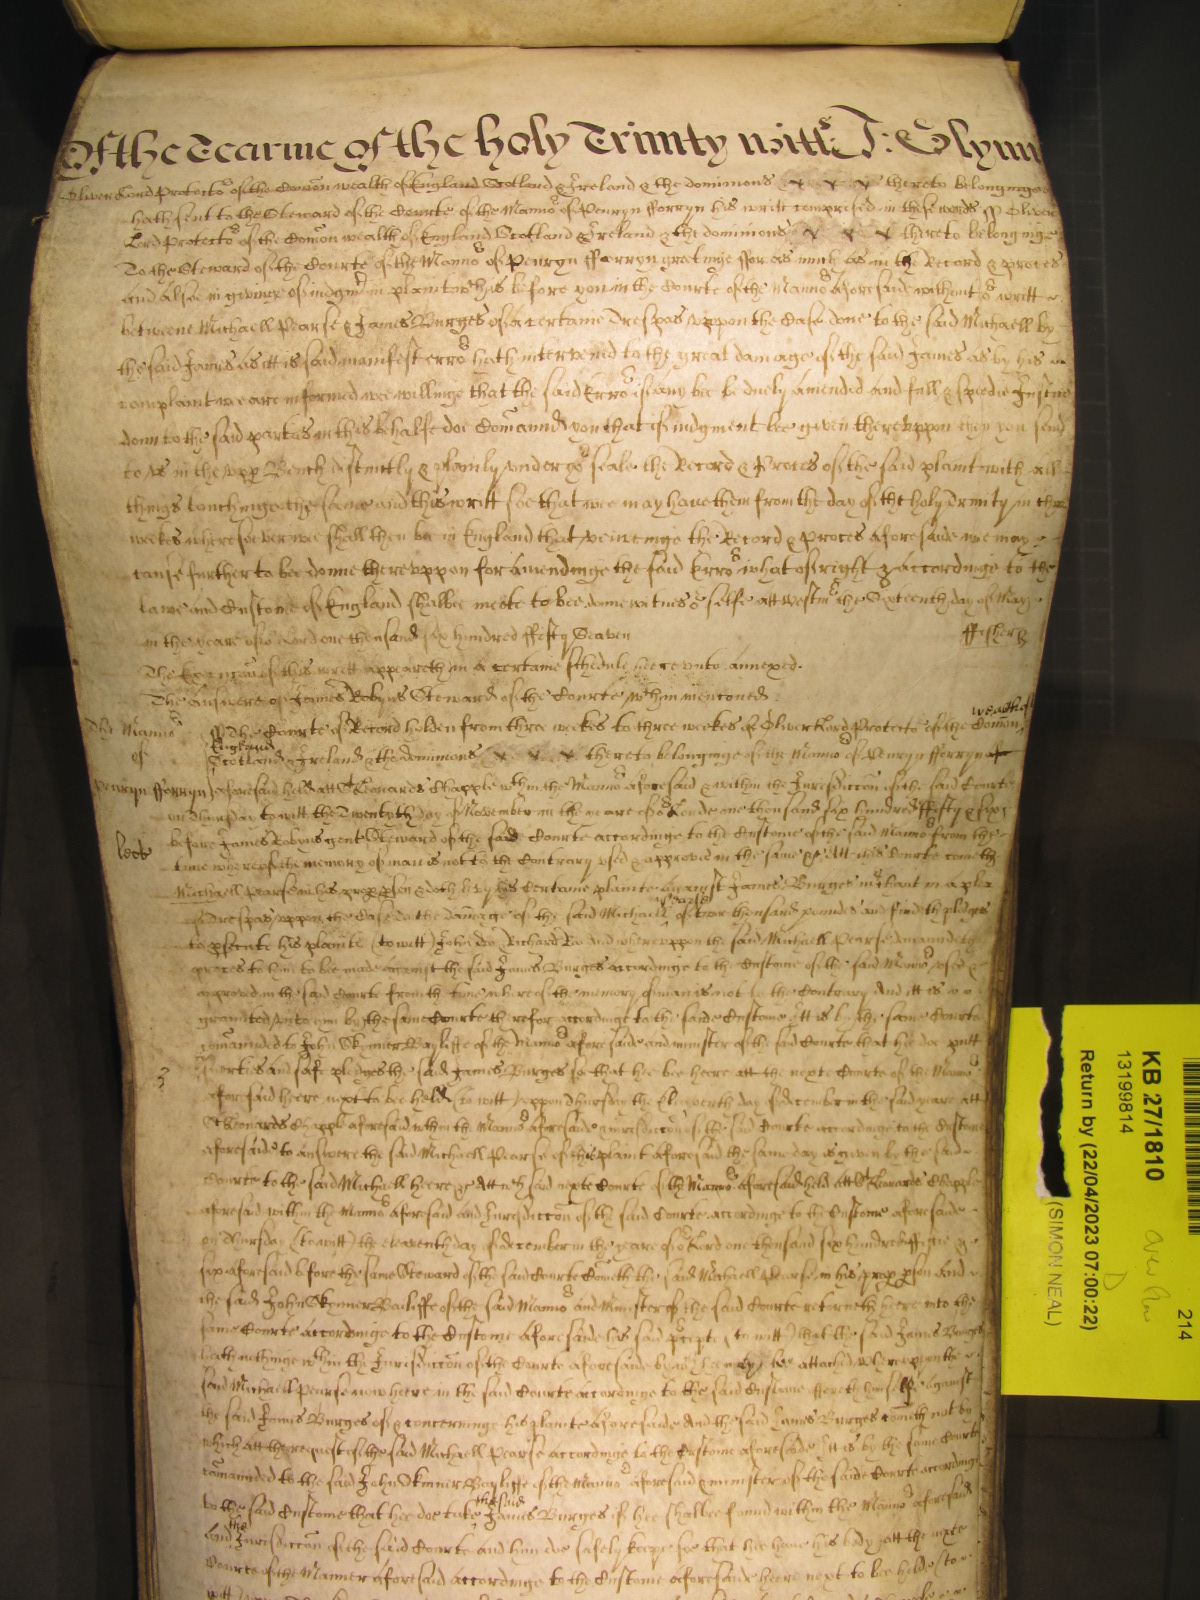 Of the Tearme of the holy Trinity witt: J: Glynn
Oliver Lord Protector of the Comon wealth of England Scotland & Ireland & the dominions x x x thereto belonginge
hath sent to the Steward of the Courte of the Mannor of Penryn fforryn his writt comprised in these words ss Oliver
Lord Protector of the Comon wealth of England Scotland & Ireland & the dominions x x x thereto belonginge
To the Steward of the Courte of the Mannor of Penryn fforryn greetinge ffor as much as in the Record & proces
and alsoe in givinge of Judgmt in plaint wch was before you in the Courte of the Mannor aforesaid without or writt
betweene Michaell Pearse & James Burges of a certaine Trespas uppon the Case done to the said Michaell by
the said James as itt is said manifest error hath intervened to the great damage of the said James as by his
complaint we are informed wee willinge that the said Error if any bee be duely amended and full & speedie Justice
donn to the said parties in this behalfe doe Comannd you that if Judgment bee given thereuppon then you send
to us in the upp Bench distinctly & plainly under yor seale the Record & Proces of the said plaint with all
things touchinge the same and this writt soe that we may have them from the day of the holy Trinity in three
weekes wheresoever wee shall then bee in England that veiweinge the Record & Proces aforesaide we may
cause further to bee donne thereuppon for amendinge the said Error what of right & accordinge to the
lawe and Custome of England shalbee meete to bee done witnes or selfe att Westmr the Sixteenth day of May
in the yeare of or Lord one thousand six hundred ffifty Seaven ffisher
The Execucon of this writt appeareth in a certaine schedule hereunto annexed.
The Answere of James Robyns Steward of the Courte wthin mentioned
The Mannor of Penryn fforryn
ss The Courte of Record holden from three weekes to three weekes of Oliver Lord Protector of the Comon wealth of
England Scotland & Ireland & the dominions x x x thereto belonginge of the Mannor of Penryn fforryn
aforesaid held att St Leonards Chapple wthin the Mannor aforesaid & within the Jurisdiccon of the said Courte
on Thursday to witt the Twentyth day of November in the yeare of or Lorde one thousand six hundred ffifty & six
before James Robyns gent Steward of the said Courte accordinge to the Custome of the said Mannor from the
time whereof the memory of man is not to the Contrary used & approved in the same Att this Courte cometh
Michaell Pearse in his proper pson & doth levy his Certaine plainte against James Burges in a plea
of Trespas uppon the Case to the damage of the said Michaell Pearse of thousand pounds and findeth pledges
to psecute his plainte (to witt) John Doe & Richard Roe And whereuppon the said Michaell Pearse demandeth
proces to him to be made against the said James Burges accordinge to the Custome of the said Mannor used &
approved in the said Courte from the time whereof the memory of man is not to the Contrary And itt is
graunted unto him by the same Courte therefor accordinge to the saide Custome itt is by the same Courte
comannded to John Skinner Bayliffe of the Mannor aforesaide and minister of the said Courte that hee doe putt
by suerties and safe pledges the said James Burges soe that hee bee heere att the next Courte of the Mannor
aforesaid heere next to be held (to witt) uppon Thursday the Eleaventh day of december in the said yeare att
St Leonards Chapple aforesaid wthin the Mannor aforesaide & Jurisdiccon of the said Courte accordinge to the Custome
aforesaide to answere the said Michaell Pearse of his plaint aforesaid the same day is given by the said
Courte to the said Michaell heere &c Att wch said next Courte of the Mannor aforesaid held att St Leonards Chapple
aforesaid within the Mannor aforesaid and Jurisdiccon of the said Courte accordinge to the Custome aforesaide
on Thursday (to witt) the eleaventh day of december in the yeare of or Lord one thousand six hundred ffiftie &
six aforesaid before the same Steward of the said Courte Cometh the said Michaell Pearse in his proper pson And
the said John Skinner Bailiffe of the said Mannor and Minister of the said Courte returneth heere into the
same Courte accordinge to the Custome aforesaide his said precipte (to witt) that the said James Burges
hath nothinge wthin the Jurisdiccon of the Courte aforesaide by wch hee may bee attached whereuppon the
said Michaell Pearse now heere in the said Courte accordinge to the said Custome offereth himselfe against
the said James Burges of & concerninge his plainte aforesaide And the said James Burges cometh not by
which att the request of the said Michaell Pearse accordinge to the Custome aforesaide Itt is by the same Courte
comannded to the said John Skinner Bayliffe of the Mannor aforesaid & minister of the saide Courte accordinge
to the said Custome that hee doe take the said James Burges if hee shalbee found within the Mannor aforesaid
And the Jurisdiccon of the said Courte and him doe safely keepe soe that hee have his body att the next
Courte of the Manner aforesaid accordinge to the Custome aforesaide heere next to be helde (to
KB 27/1810
13199814
Return by (22/04/2023 07:00:22)
(SIMON NEAL)
214